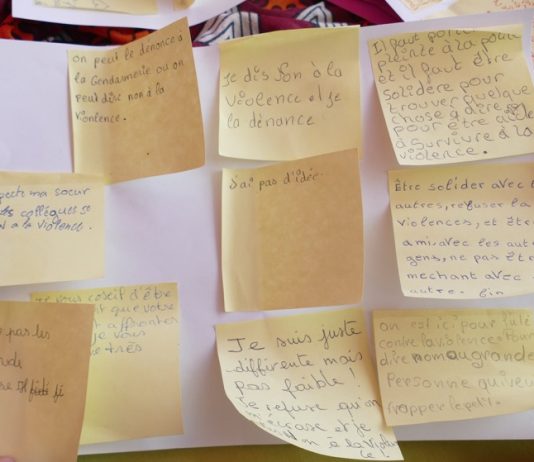 on peut le dénoncé à
la Gendarmerie ou on
peut disc non à la
violence.
Je dis Non à la
violence et je
la dénance
Il faut porter
plainte à la poli
et il faut être
solidère pour
trouver quelque
chose a dire
pour être aidé
a survivre à la
violence.
pecte ma soeur
collègues
a la violence.
J'ai pas d'idée.
Être solider avec
autres, refuser la
violences, et être
ami avec les aut
gens, ne pas être
mechant avec
autre. Fin
conseil d'être
que votre
affronter
vous
très
pas les
Je suis juste
différente mais
pas faible!
Je refuse qu'on
m'écrase et je
à la viole
on est ici pour luté
contre la violence. Pour
dire nom au grande
Personne qui veu
frapper le petit.